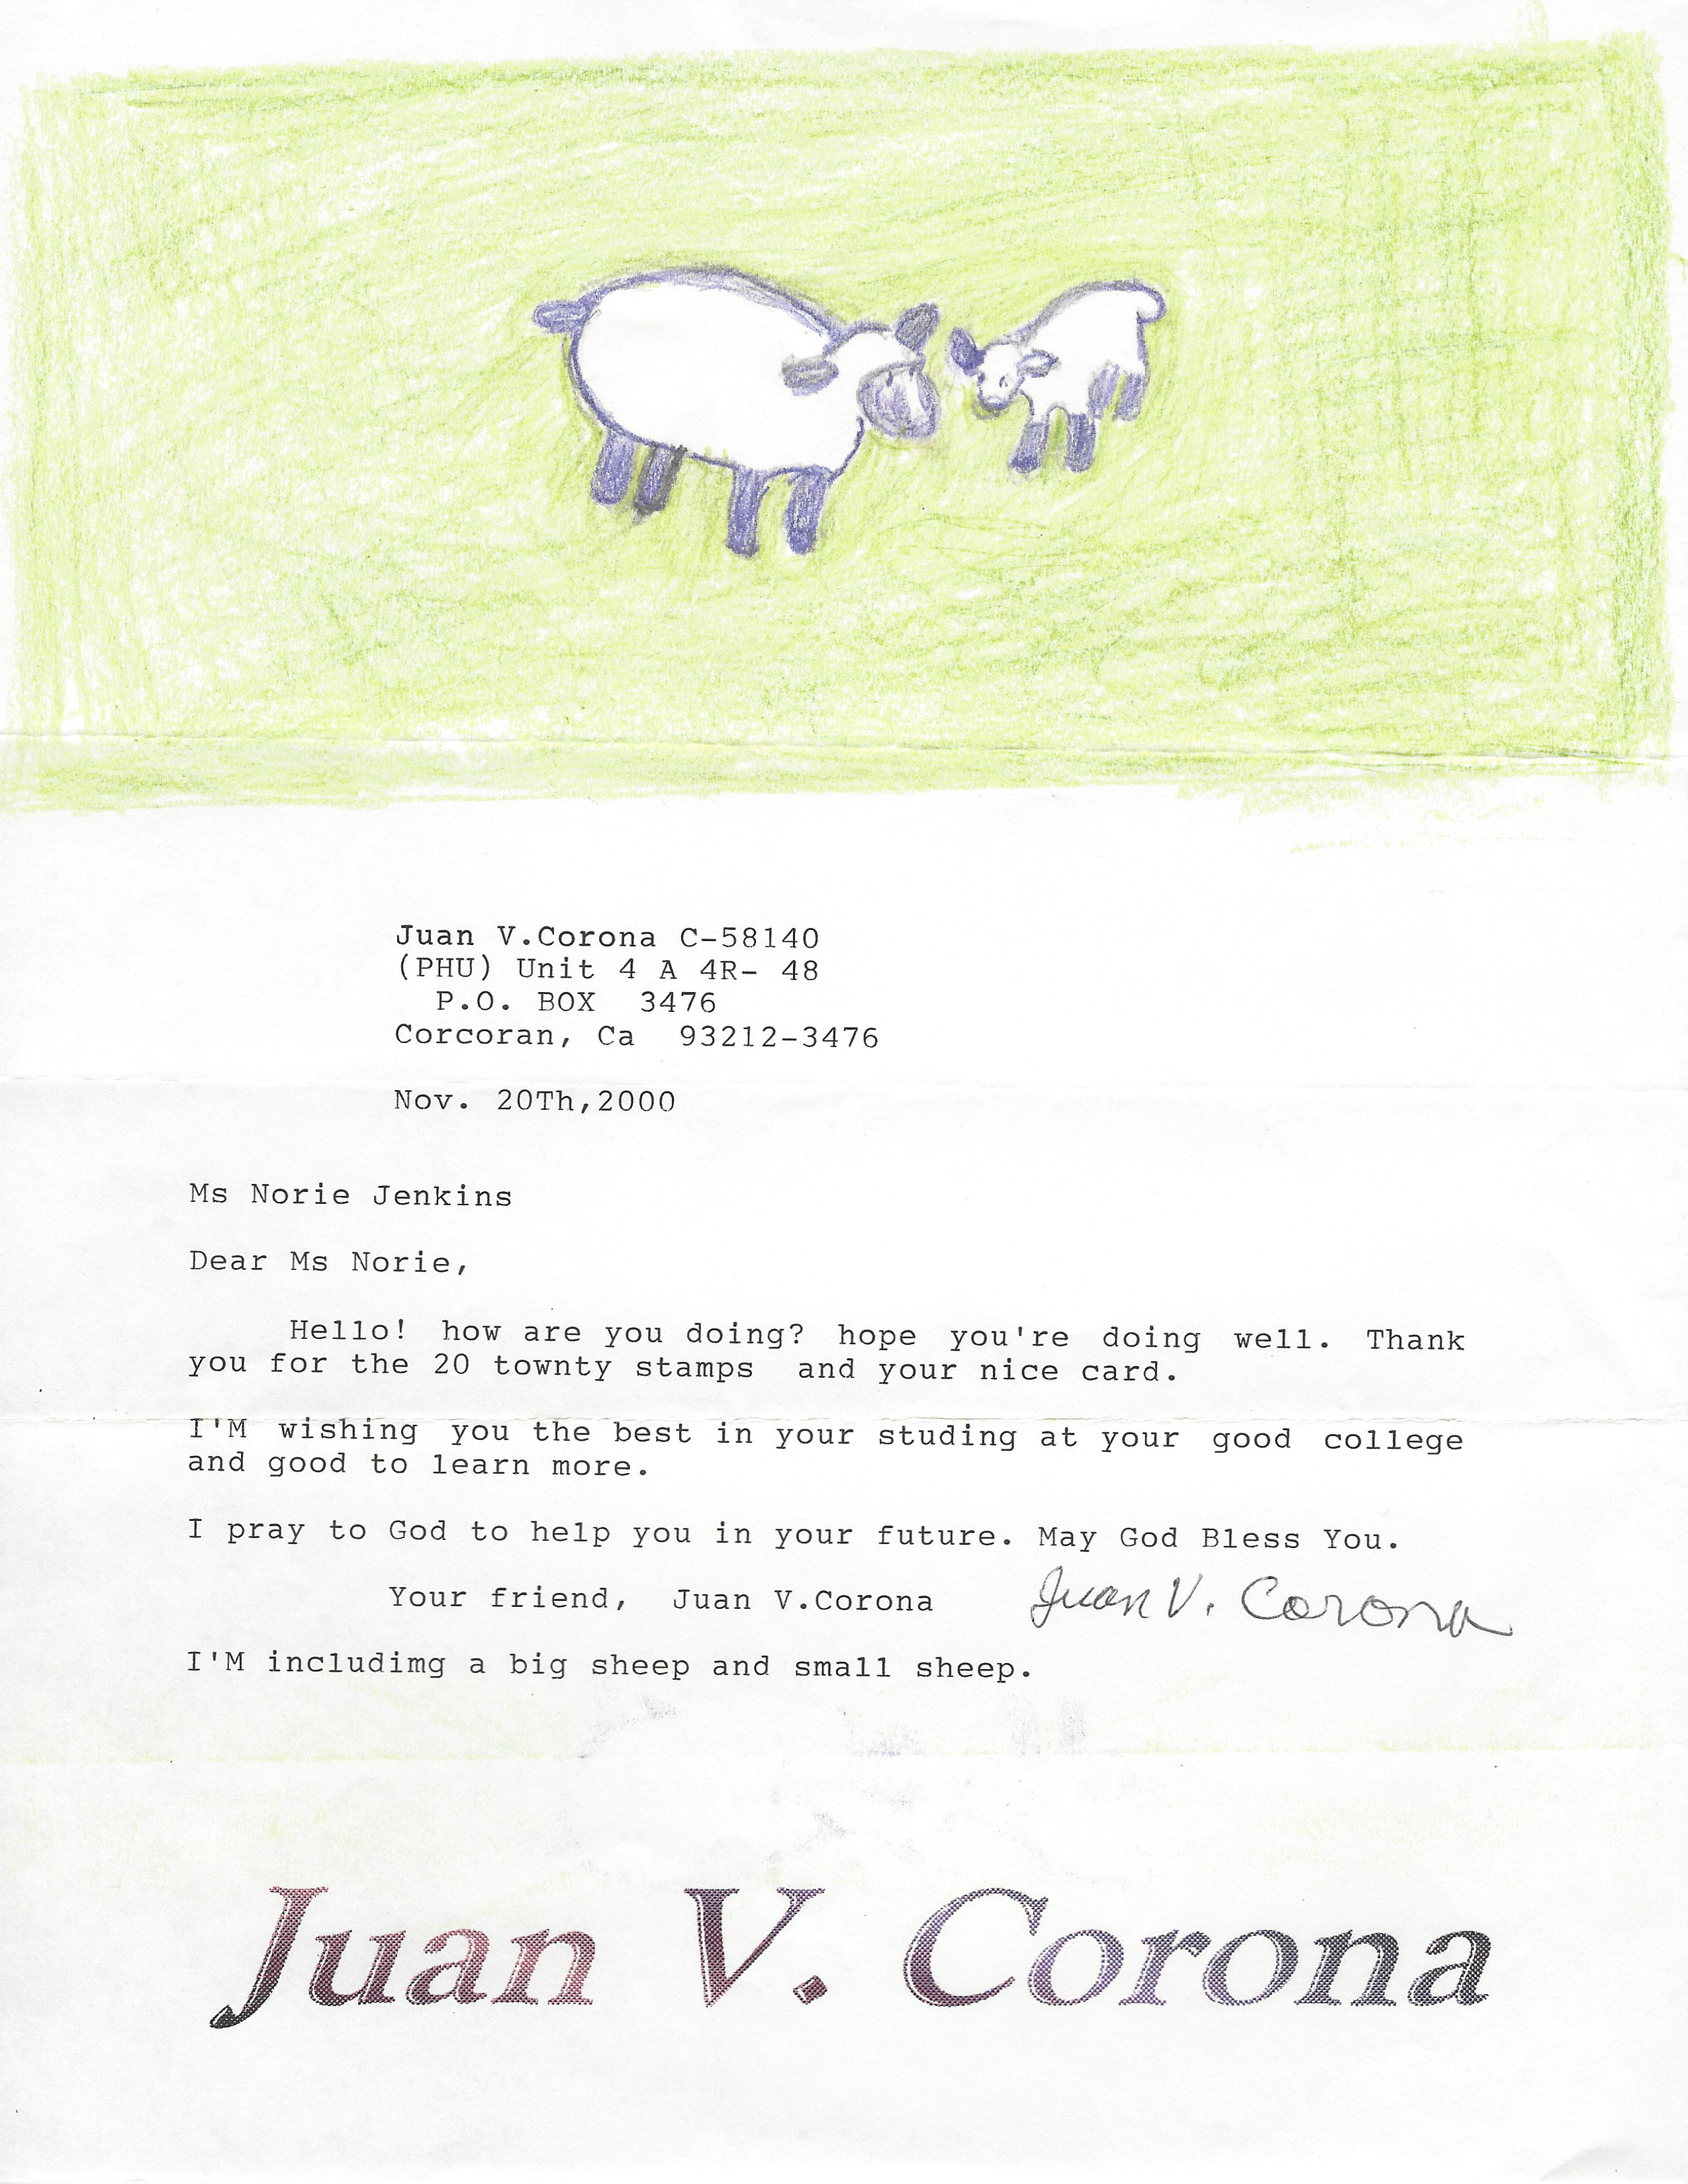 Juan V.Corona C-58140
(PHU) Unit 4 A 4R- 48
P.O. BOX 3476
Corcoran, Ca 93212-3476
Nov. 20Th,2000
Ms Norie Jenkins
Dear Ms Norie,
Hello! how are you doing? hope you're doing well. Thank
you for the 20 townty stamps and your nice card.
I'M wishing you the best in your studing at your good college
and good to learn more.
I pray to God to help you in your future. May God Bless You.
Your friend, Juan V.Corona Juan V. Corona
I'M includimg a big sheep and small sheep.
Juan V. Corona